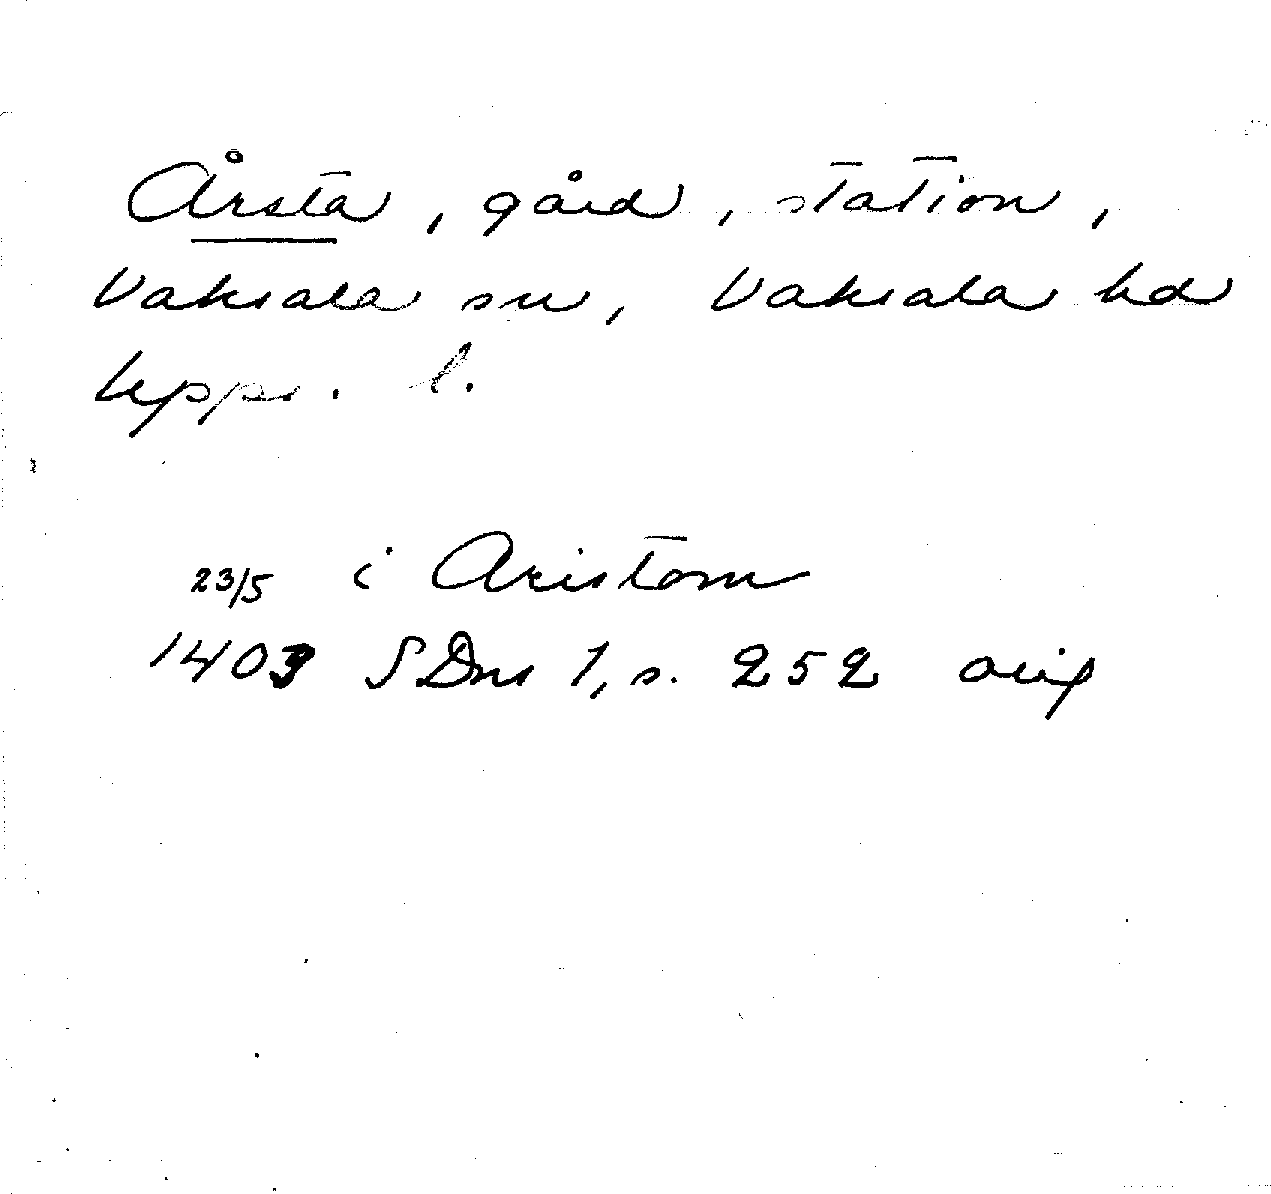 Årsta, gård, station,
Vaksala sn, Vaksala hd
Upps. l.
23/5 i Aristom
1403 SDns 1, s. 252 orig